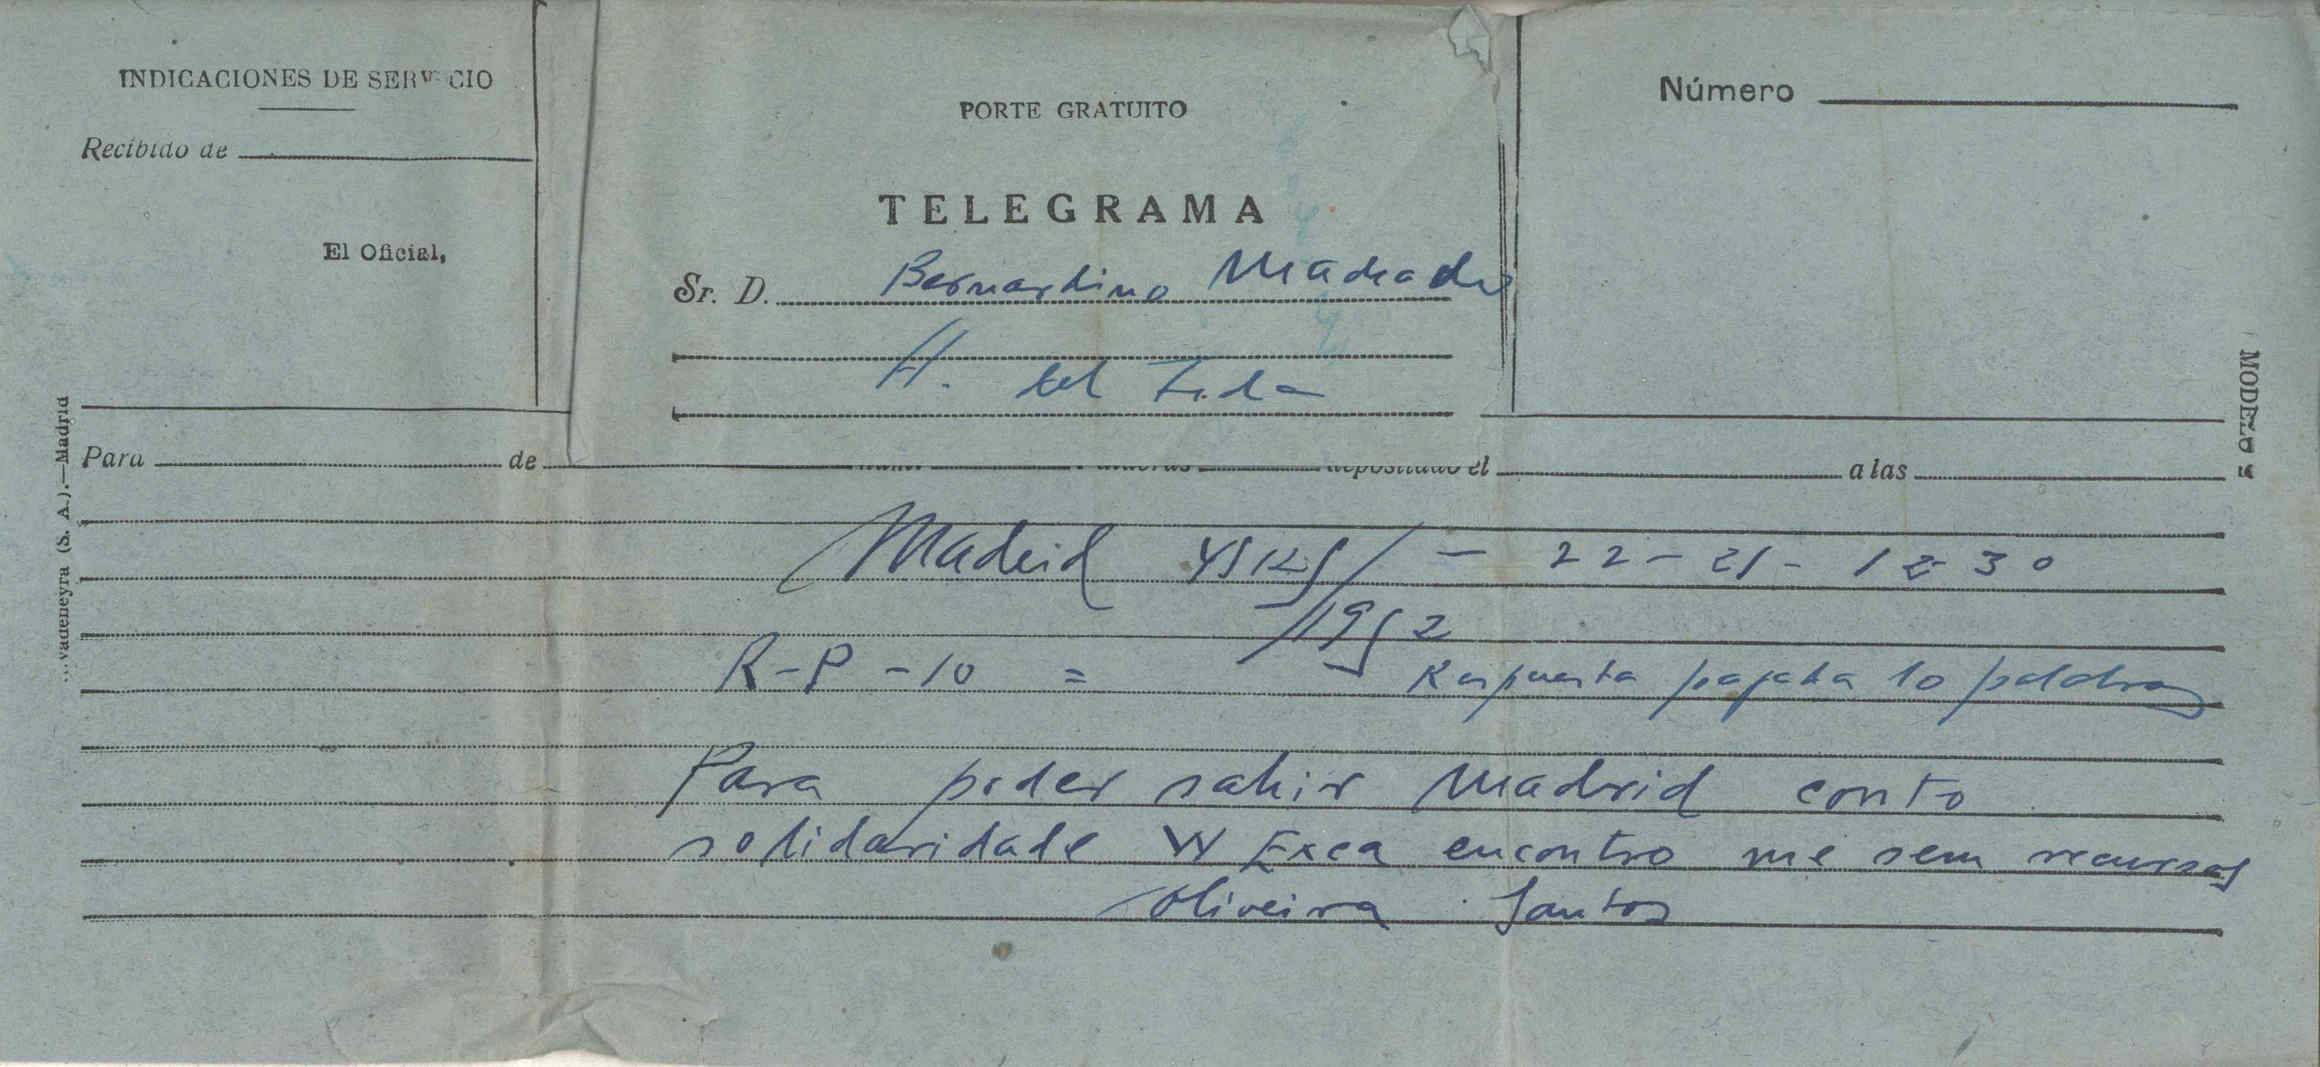 INDICACIONES DE SERVICIO
Recibido de
El Oficial,
PORTE GRATUITO
TELEGRAMA
Sr. D. Bernardino Machado
H. del
Número
MODELO
vadeneyra (S. A.).—Madrid
Para de depositado el a las
Madrid - 22 - 21 - 12 30
1952
R-P-10 = Respuesta pagada 10 palabras
Para poder sahir Madrid conto
solidaridade W Exca encontro me sem recursos
Oliveira Santos